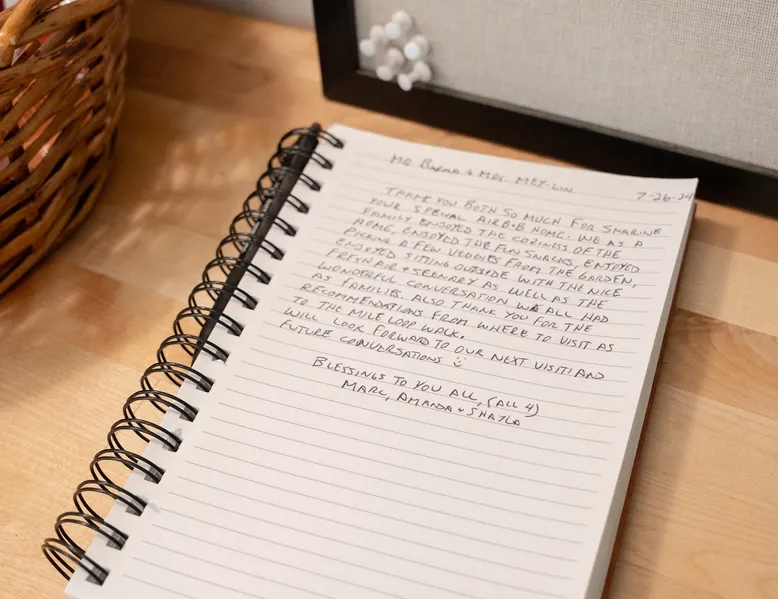 MR BARMA + MRS. MEY-LIN
7-26-24
THANK YOU BOTH SO MUCH FOR SHARING
YOUR SPECIAL AIRB+B HOME. WE AS A
FAMILY ENJOYED THE COZINESS OF THE
HOME, ENJOYED THE FUN SNACKS, ENJOYED
PICKING A FEW VEGGIES FROM THE GARDEN,
ENJOYED SITTING OUTSIDE WITH THE NICE
FRESH AIR + SCENARY AS WELL AS THE
WONDERFUL CONVERSATION WE ALL HAD
AS FAMILIES. ALSO THANK YOU FOR THE
RECOMMENDATIONS FROM WHERE TO VISIT AS
TO THE MILE LOOP WALK.
WILL LOOK FORWARD TO OUR NEXT VISIT! AND
FUTURE CONVERSATIONS
BLESSINGS TO YOU ALL, (ALL 4)
MARC, AMANDA + SHAYLA